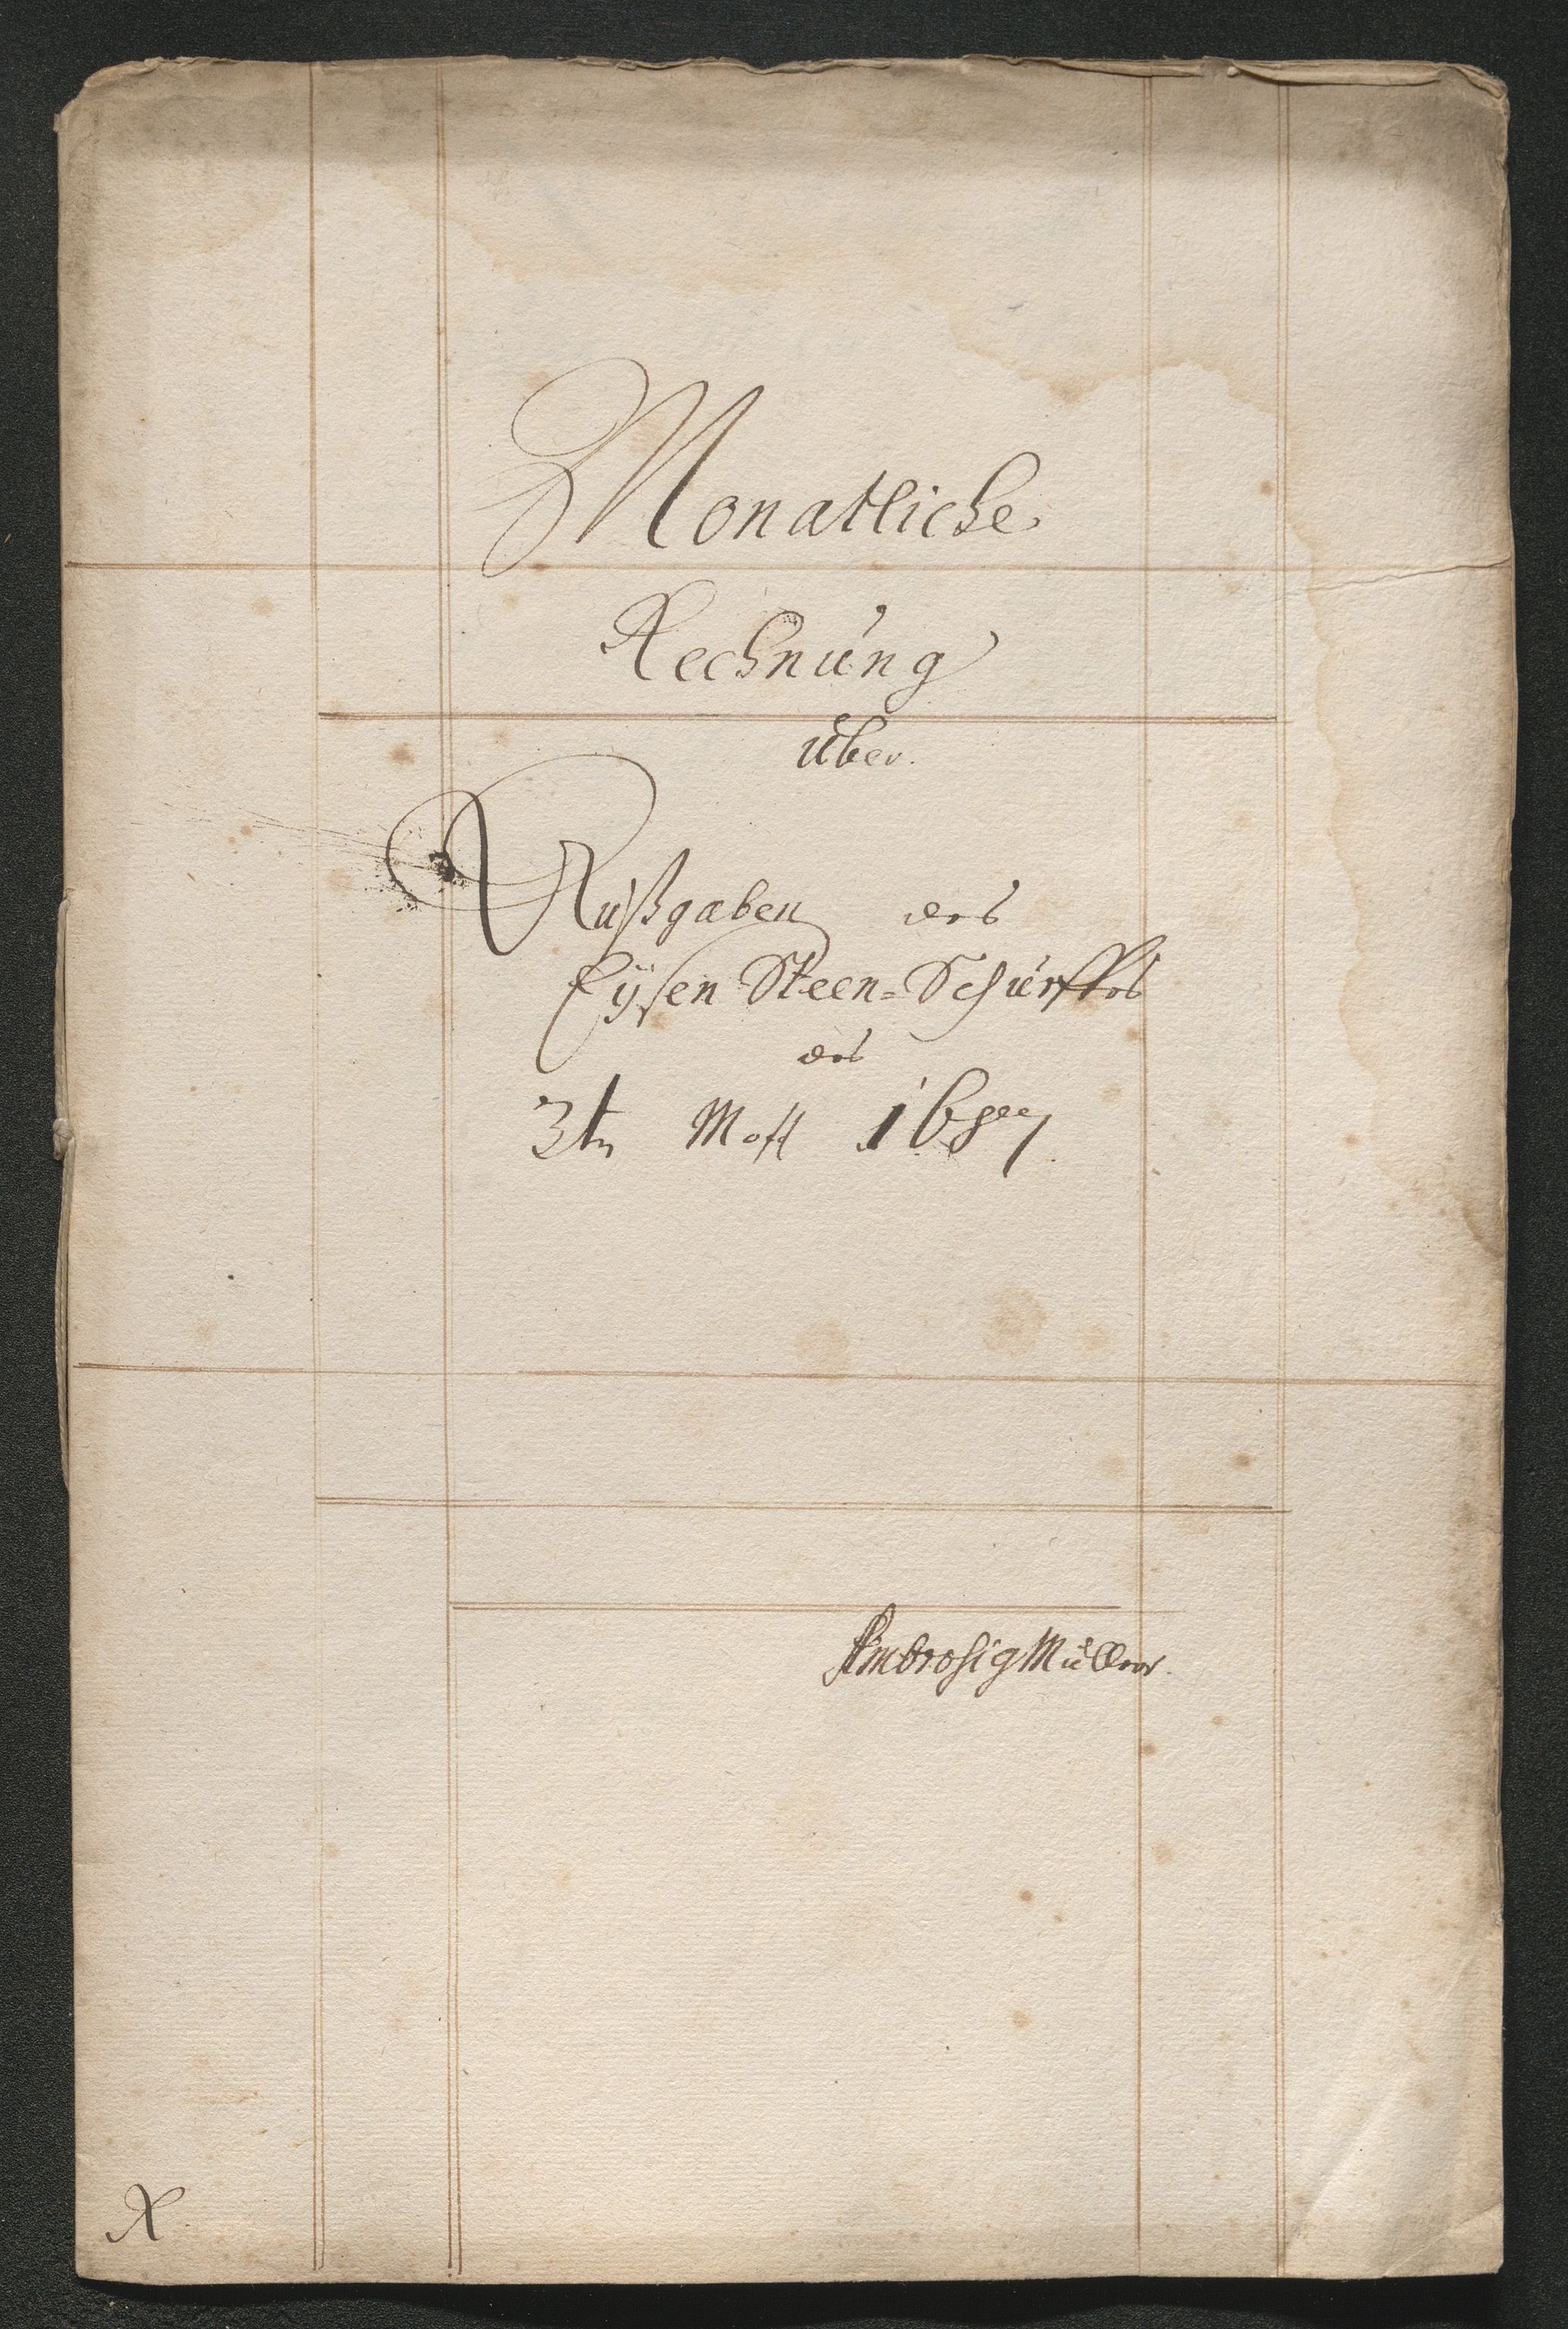 Monatliche
Rechnung
über
Außgaben des
Eÿsen Steen=Schürffes
des
3tn Mott 1687
Ambrosig Müller.
X.